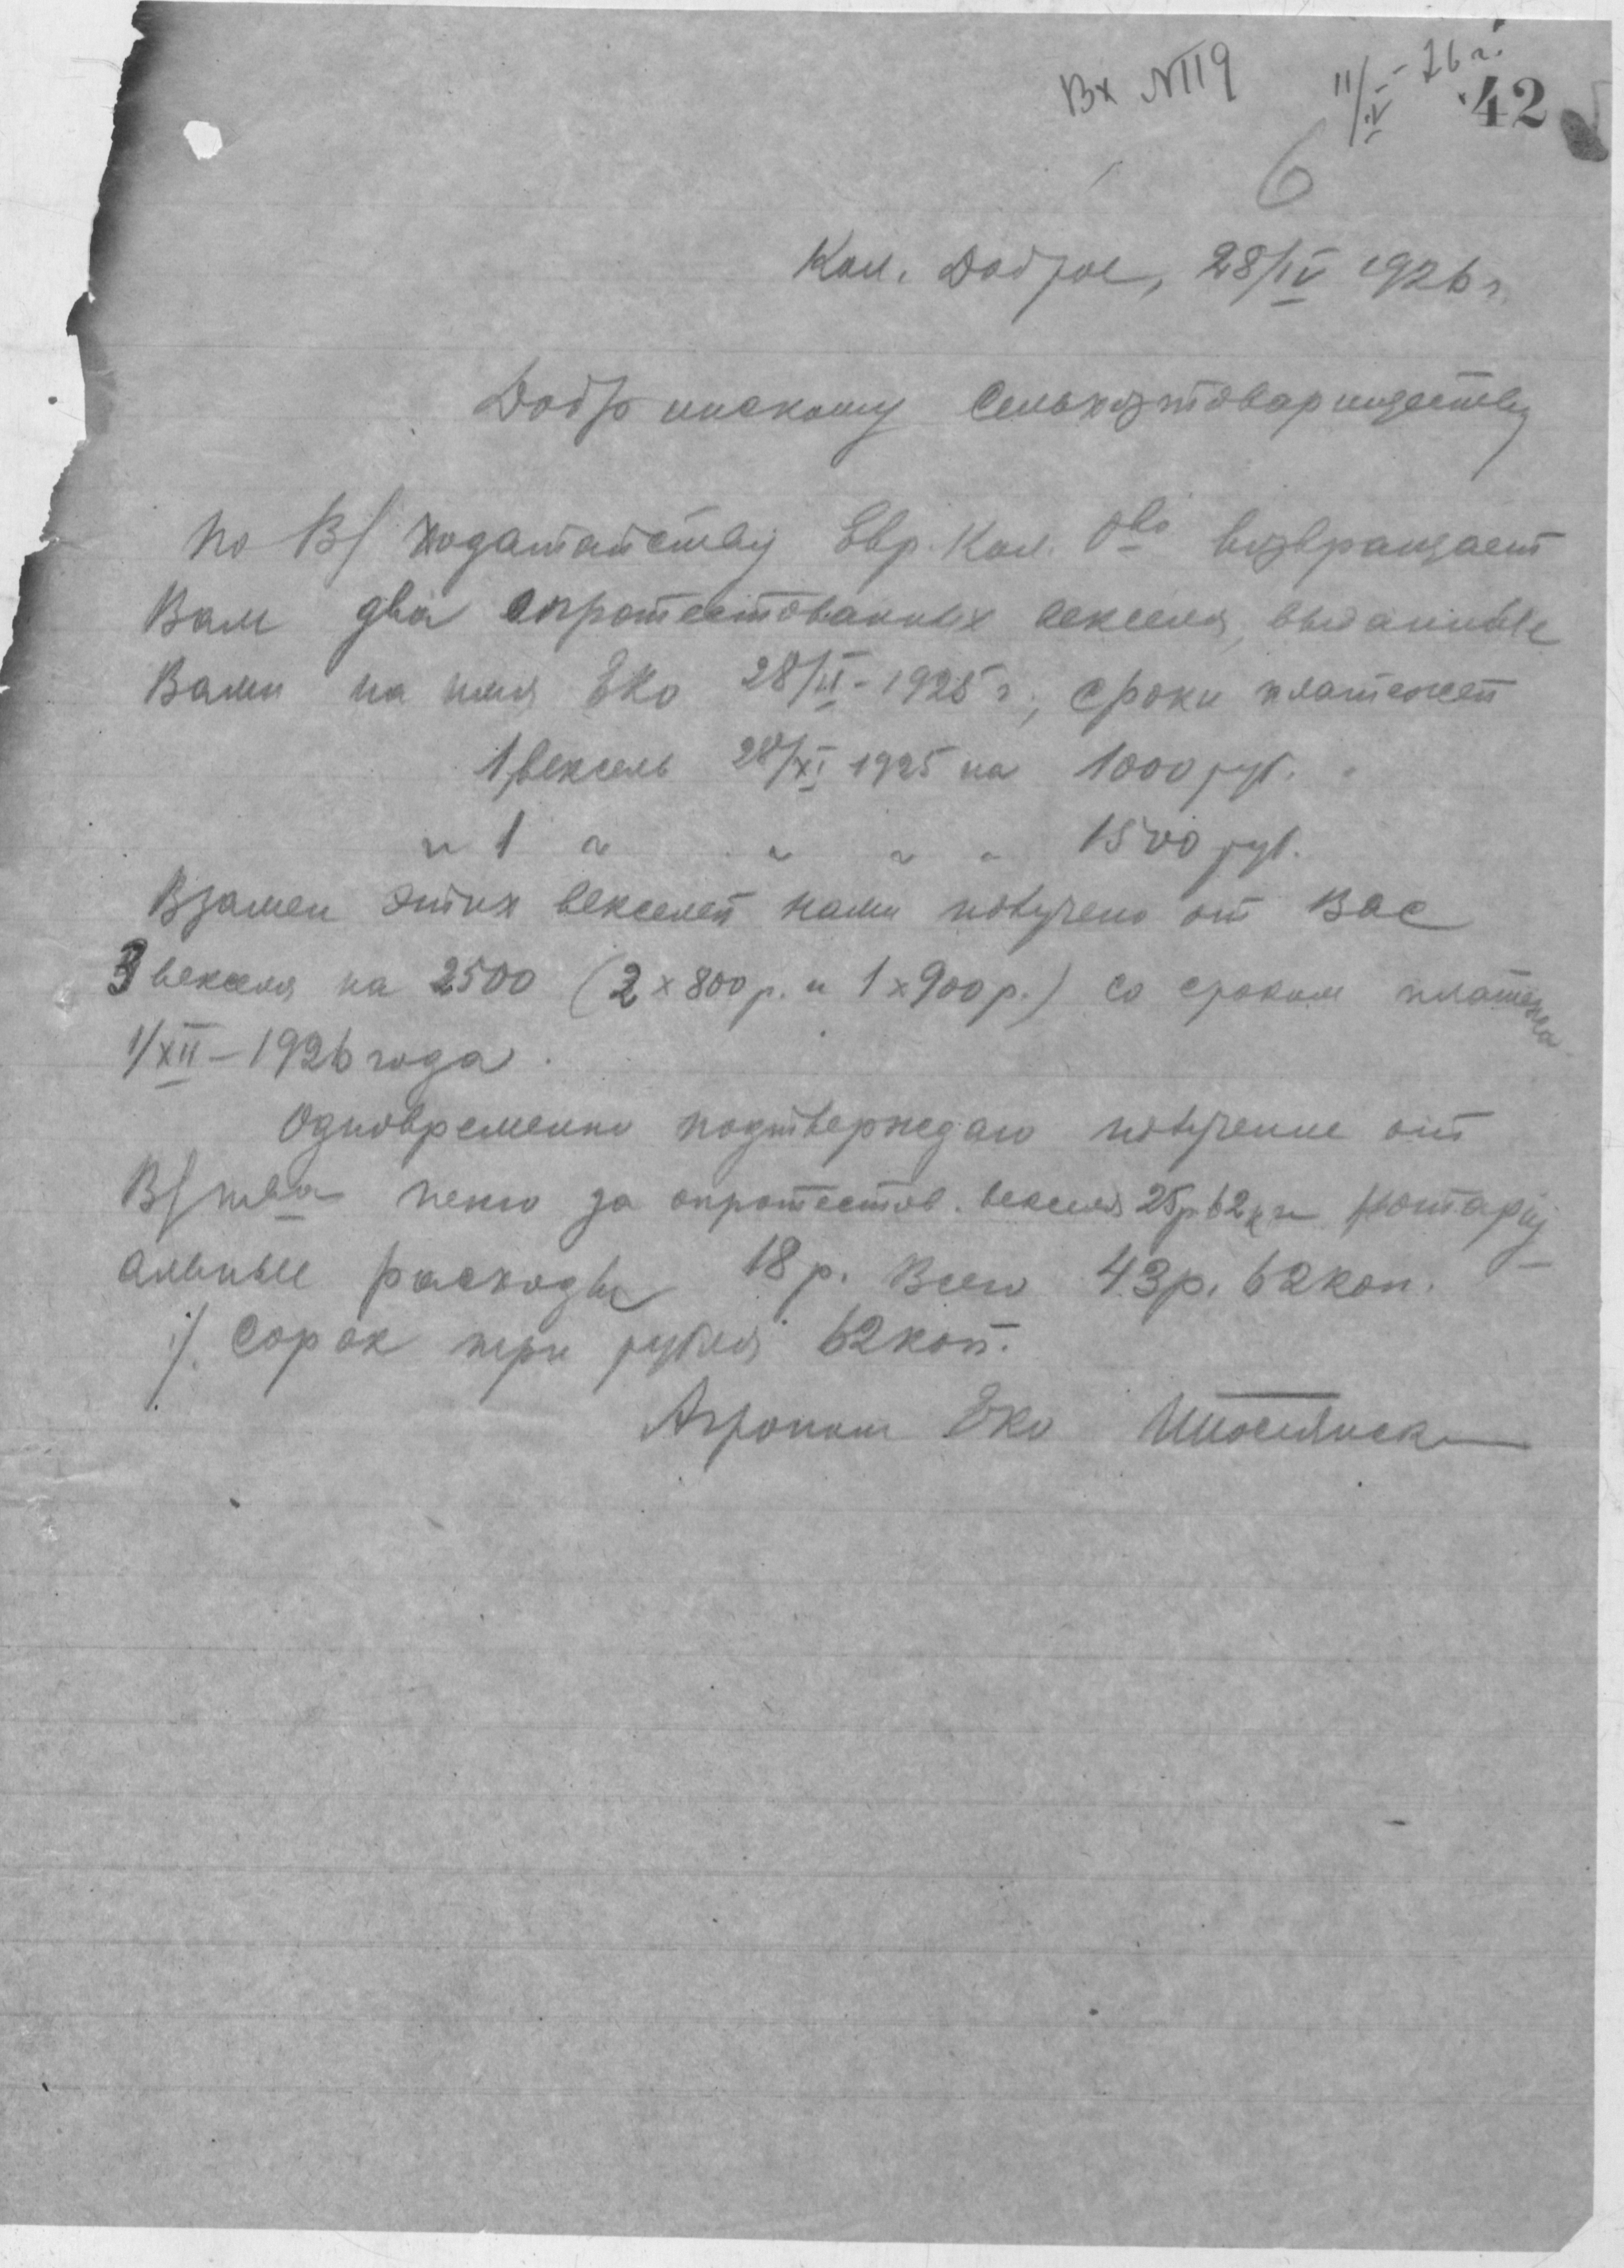 Вх №119 11/V-26 г.
42
6
Кол. Доброе, 28/IV 1926 г.
Добринскому Сельхозтовариществу
По В/ ходатайству Евр. Кол. О-во возвращает
Вам два опротестованных векселя, выданные
Вами на имя ЕКО 28/II-1925 г., сроки платежей
1 вексель 28/XI 1925 на 1000 руб.
" 1 " " " " 1500 руб.
Взамен этих векселей нами получено от Вас
3 векселя на 2500 (2 x 800 р. и 1 x 900 р.) со сроком платежа
1/XII-1926 года.
Одновременно подтверждаю получение от
В/ т-ва пеню за опротестов. векселя 25 р 62 к и нотари
альные расходы 18 р. Всего 43 р. 62 коп.
/. Сорок три рубля 62 коп.
Агроном ЕКО